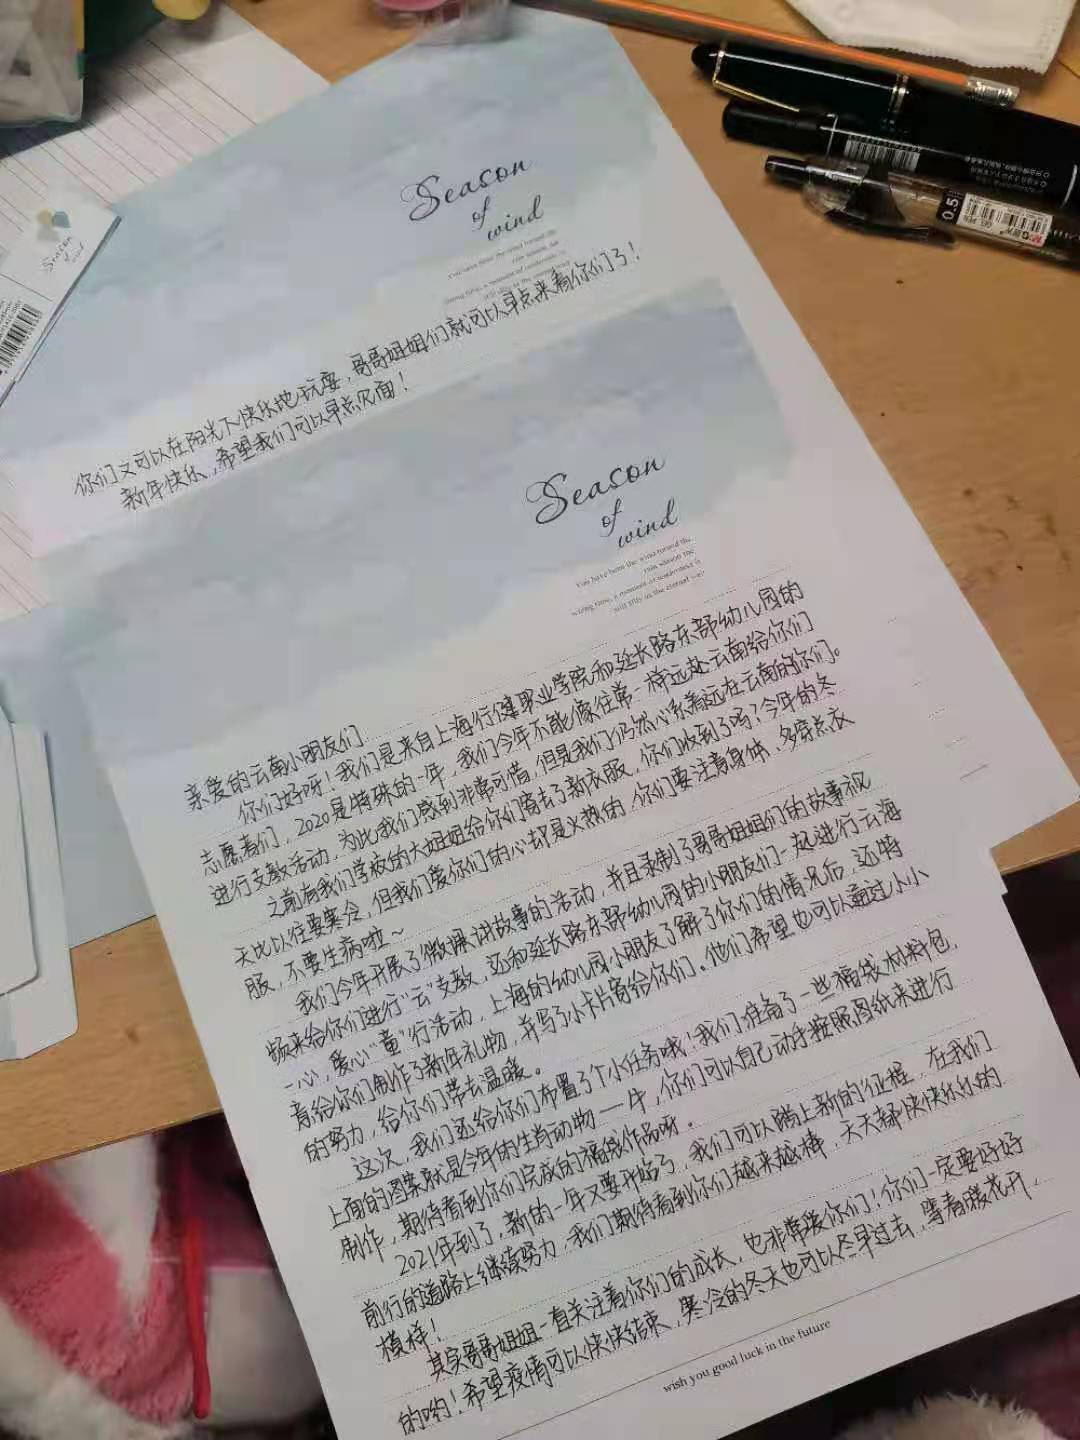 Season
of
wind
You have been the wind toward the
你们又可以在阳光下快乐地玩耍，哥哥姐姐们就可以早点来看你们了！
新年快乐，希望我们可以早点见面！
Season
of
wind
You have been the wind toward the
rain season the
wrong time, a moment of tenderness is
still silly as the eternal wait
亲爱的云南小朋友们：
你们好呀！我们是来自上海行健职业学院和延长路东部幼儿园的
志愿者们，2020是特殊的一年，我们今年不能像往常一样远赴云南给你们
进行支教活动，为此我们感到非常可惜，但是我们仍然心系着远在云南的你们。
之前有我们学校的大姐姐给你们寄去了新衣服，你们收到了吗？今年的冬
天比以往要寒冷，但我们爱你们的心却是火热的，你们要注意身体，多穿点衣
服，不要生病啦～
我们今年开展了微课讲故事的活动，并且录制了哥哥姐姐们的故事视
频来给你们进行“云”支教，还和延长路东部幼儿园的小朋友们一起进行云海
一心，爱心“童”行活动，上海的幼儿园小朋友了解了你们的情况后，还特
意给你们制作了新年礼物，并写了小卡片寄给你们。他们希望也可以通过小小
的努力，给你们带去温暖。
这次，我们还给你们布置了个小任务哦！我们准备了一些福袋材料包，
上面的图案就是今年的生肖动物——牛，你们可以自己动手按照图纸来进行
制作，期待看到你们完成的福袋作品呀。
2021年到了，新的一年又要开始了，我们可以踏上新的征程，在我们
前行的道路上继续努力，我们期待看到你们越来越棒，天天都快快乐乐的
模样！
其实哥哥姐姐一直关注着你们的成长，也非常爱你们！你们一定要好好
的哟！希望疫情可以快快结束，寒冷的冬天也可以尽早过去，等春暖花开，
wish you good luck in the future
Season
of
0.5
GEL PEN
M&G